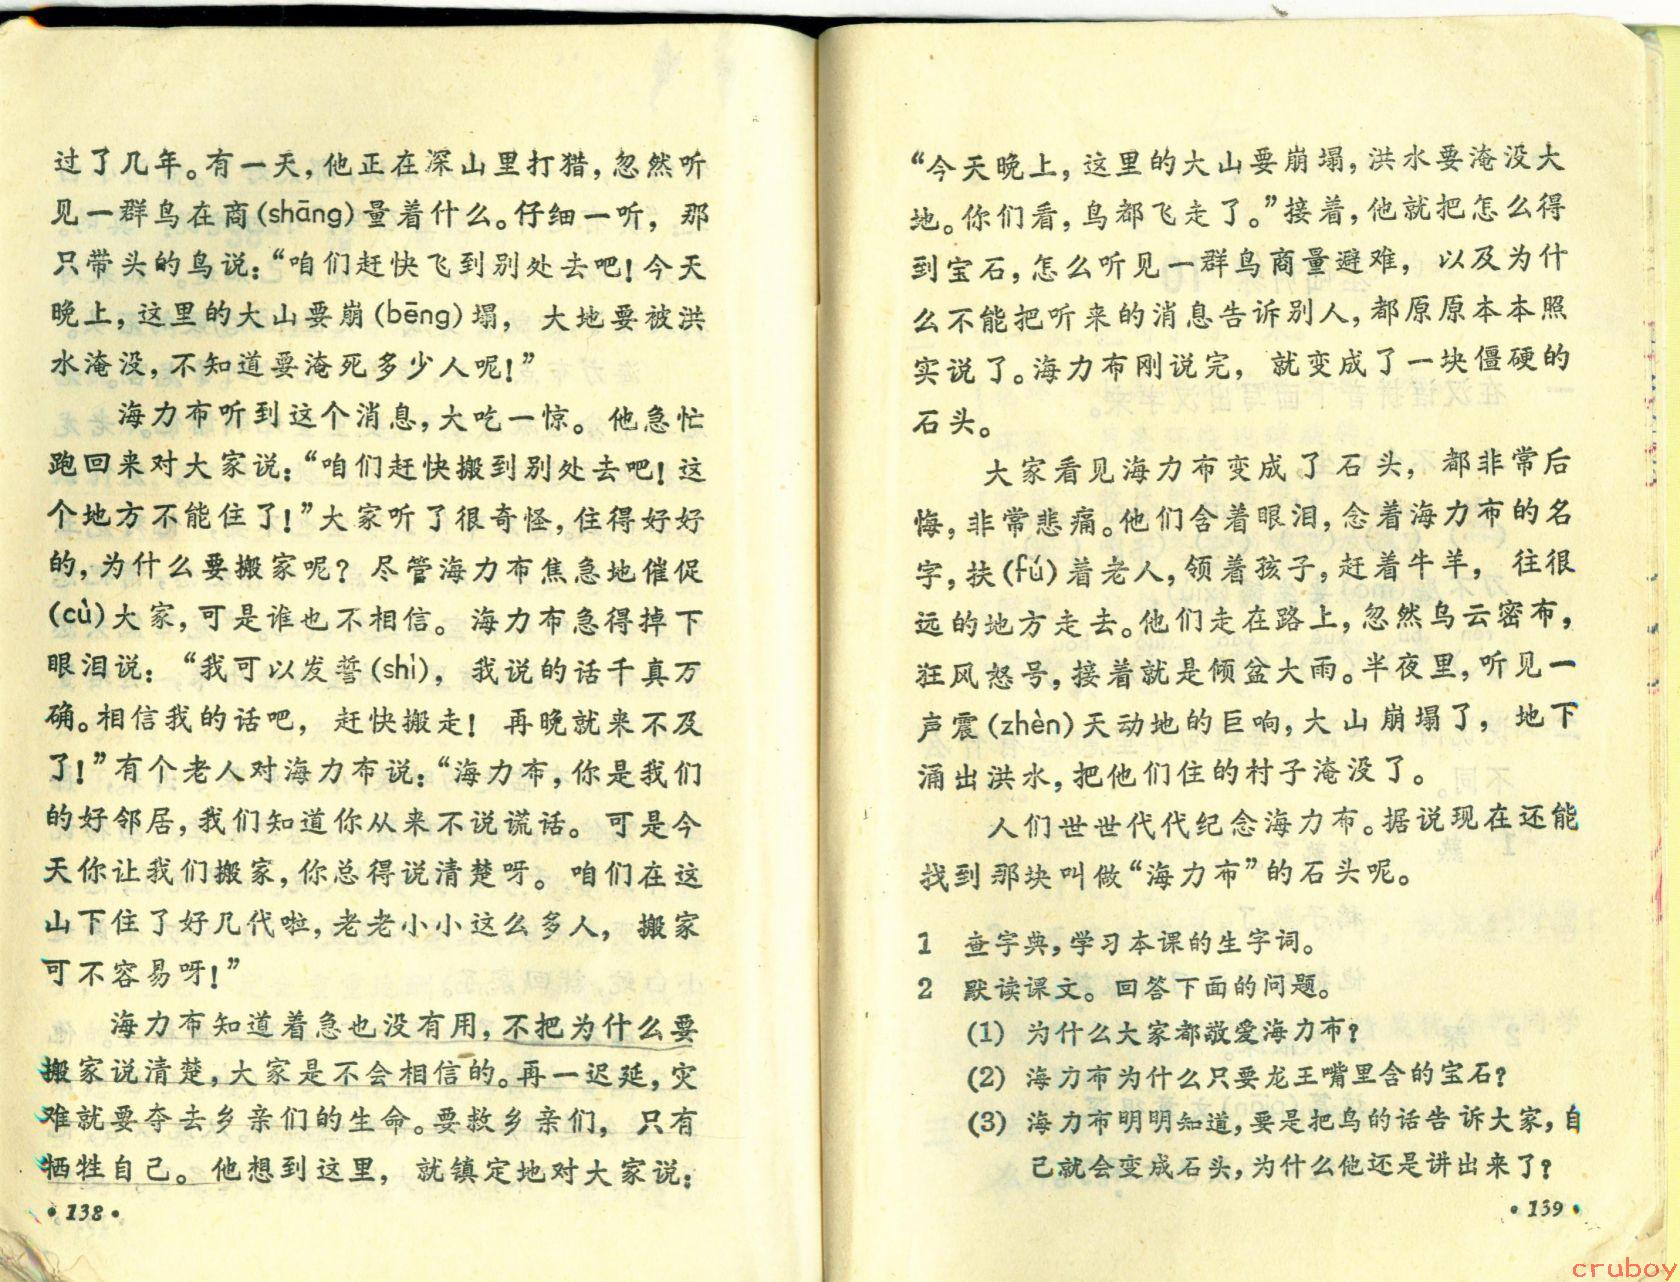 过了几年。有一天，他正在深山里打猎，忽然听
见一群鸟在商(shāng)量着什么。仔细一听，那
只带头的鸟说：“咱们赶快飞到别处去吧！今天
晚上，这里的大山要崩(bēng)塌，大地要被洪
水淹没，不知道要淹死多少人呢！”
海力布听到这个消息，大吃一惊。他急忙
跑回来对大家说：“咱们赶快搬到别处去吧！这
个地方不能住了！”大家听了很奇怪，住得好好
的，为什么要搬家呢？尽管海力布焦急地催促
(cù)大家，可是谁也不相信。海力布急得掉下
眼泪说：“我可以发誓(shì)，我说的话千真万
确。相信我的话吧，赶快搬走！再晚就来不及
了！”有个老人对海力布说：“海力布，你是我们
的好邻居，我们知道你从来不说谎话。可是今
天你让我们搬家，你总得说清楚呀。咱们在这
山下住了好几代啦，老老小小这么多人，搬家
可不容易呀！”
海力布知道着急也没有用，不把为什么要
搬家说清楚，大家是不会相信的。再一迟延，灾
难就要夺去乡亲们的生命。要救乡亲们，只有
牺牲自己。他想到这里，就镇定地对大家说：
·138·
“今天晚上，这里的大山要崩塌，洪水要淹没大
地。你们看，鸟都飞走了。”接着，他就把怎么得
到宝石，怎么听见一群鸟商量避难，以及为什
么不能把听来的消息告诉别人，都原原本本照
实说了。海力布刚说完，就变成了一块僵硬的
石头。
大家看见海力布变成了石头，都非常后
悔，非常悲痛。他们含着眼泪，念着海力布的名
字，扶(fú)着老人，领着孩子，赶着牛羊，往很
远的地方走去。他们走在路上，忽然乌云密布，
狂风怒号，接着就是倾盆大雨。半夜里，听见一
声震(zhèn)天动地的巨响，大山崩塌了，地下
涌出洪水，把他们住的村子淹没了。
人们世世代代纪念海力布。据说现在还能
找到那块叫做“海力布”的石头呢。
1 查字典，学习本课的生字词。
2 默读课文。回答下面的问题。
(1) 为什么大家都敬爱海力布？
(2) 海力布为什么只要龙王嘴里含的宝石？
(3) 海力布明明知道，要是把鸟的话告诉大家，自
己就会变成石头，为什么他还是讲出来了？
·139·
cruboy